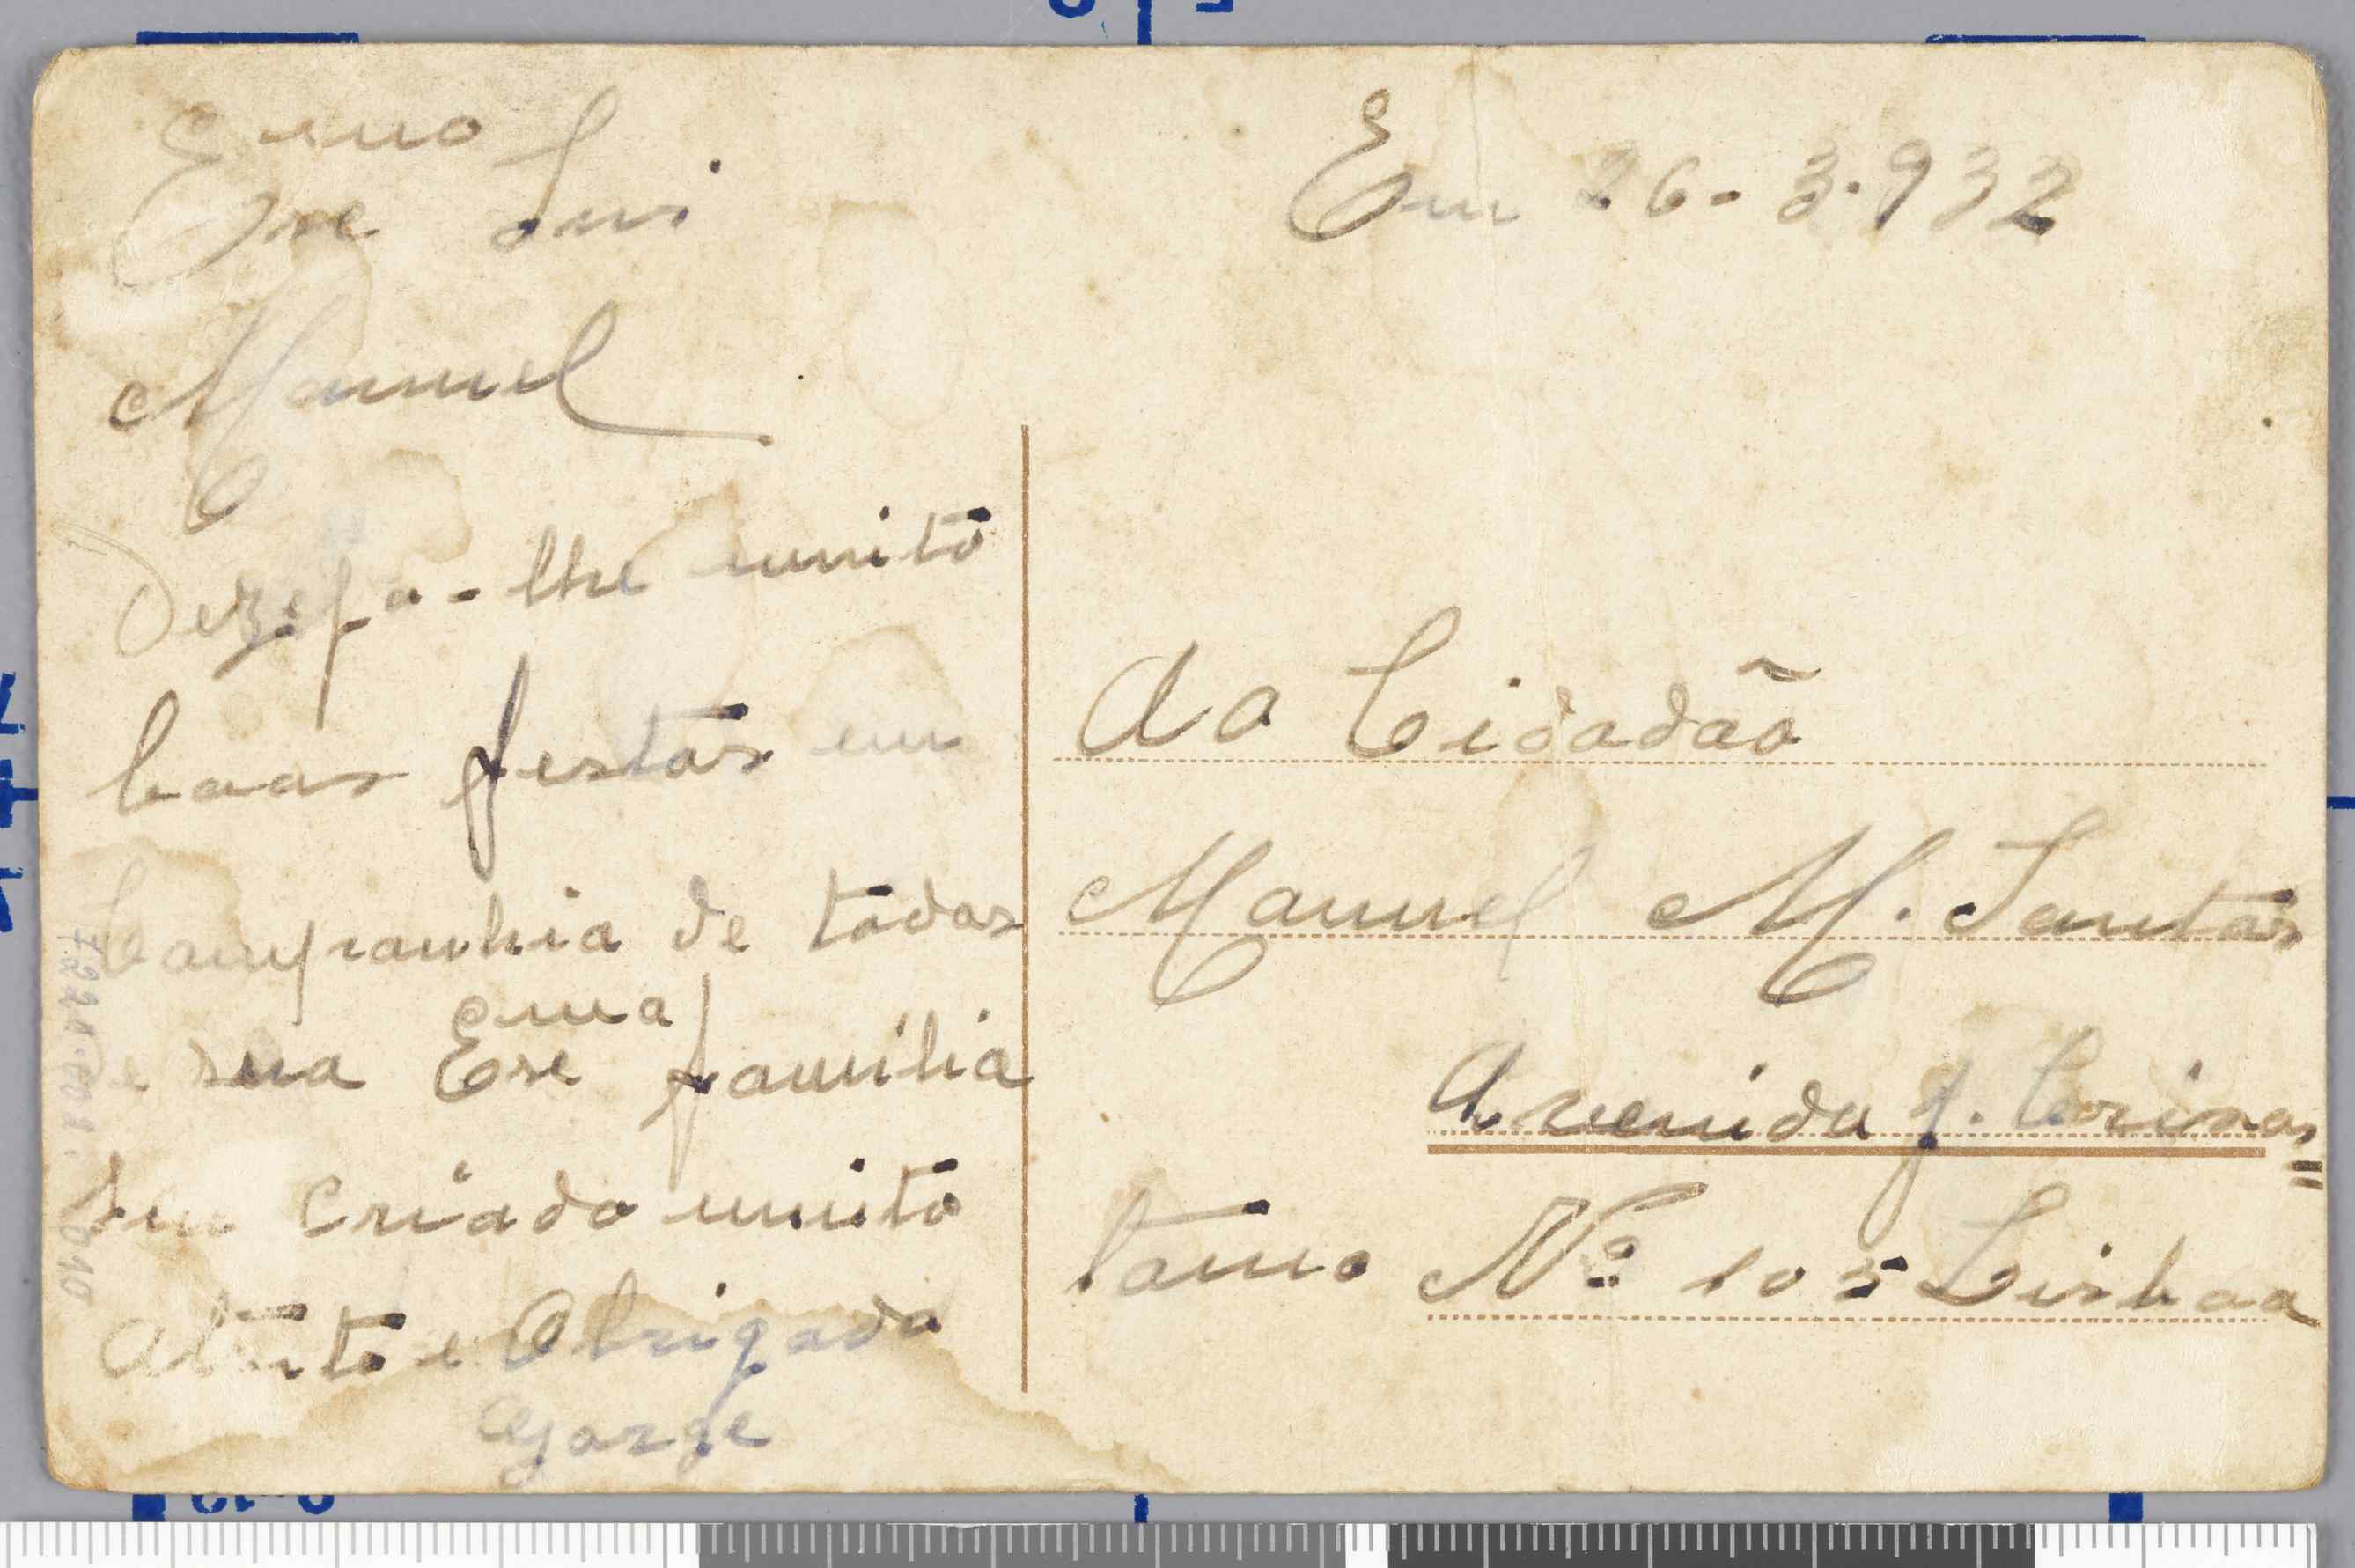 Exe mo Snr
Manuel
Dezeja-lhe muito
boas festas em
Companhia de todas
e sua Exe ma familia
seu criado muito
Atento e Obrigado
Gorge
Em 26-3-932
Ao Cidadão
Manuel M. Santos
Avenida J. Crisos=
tomo Nº 105 Lisboa